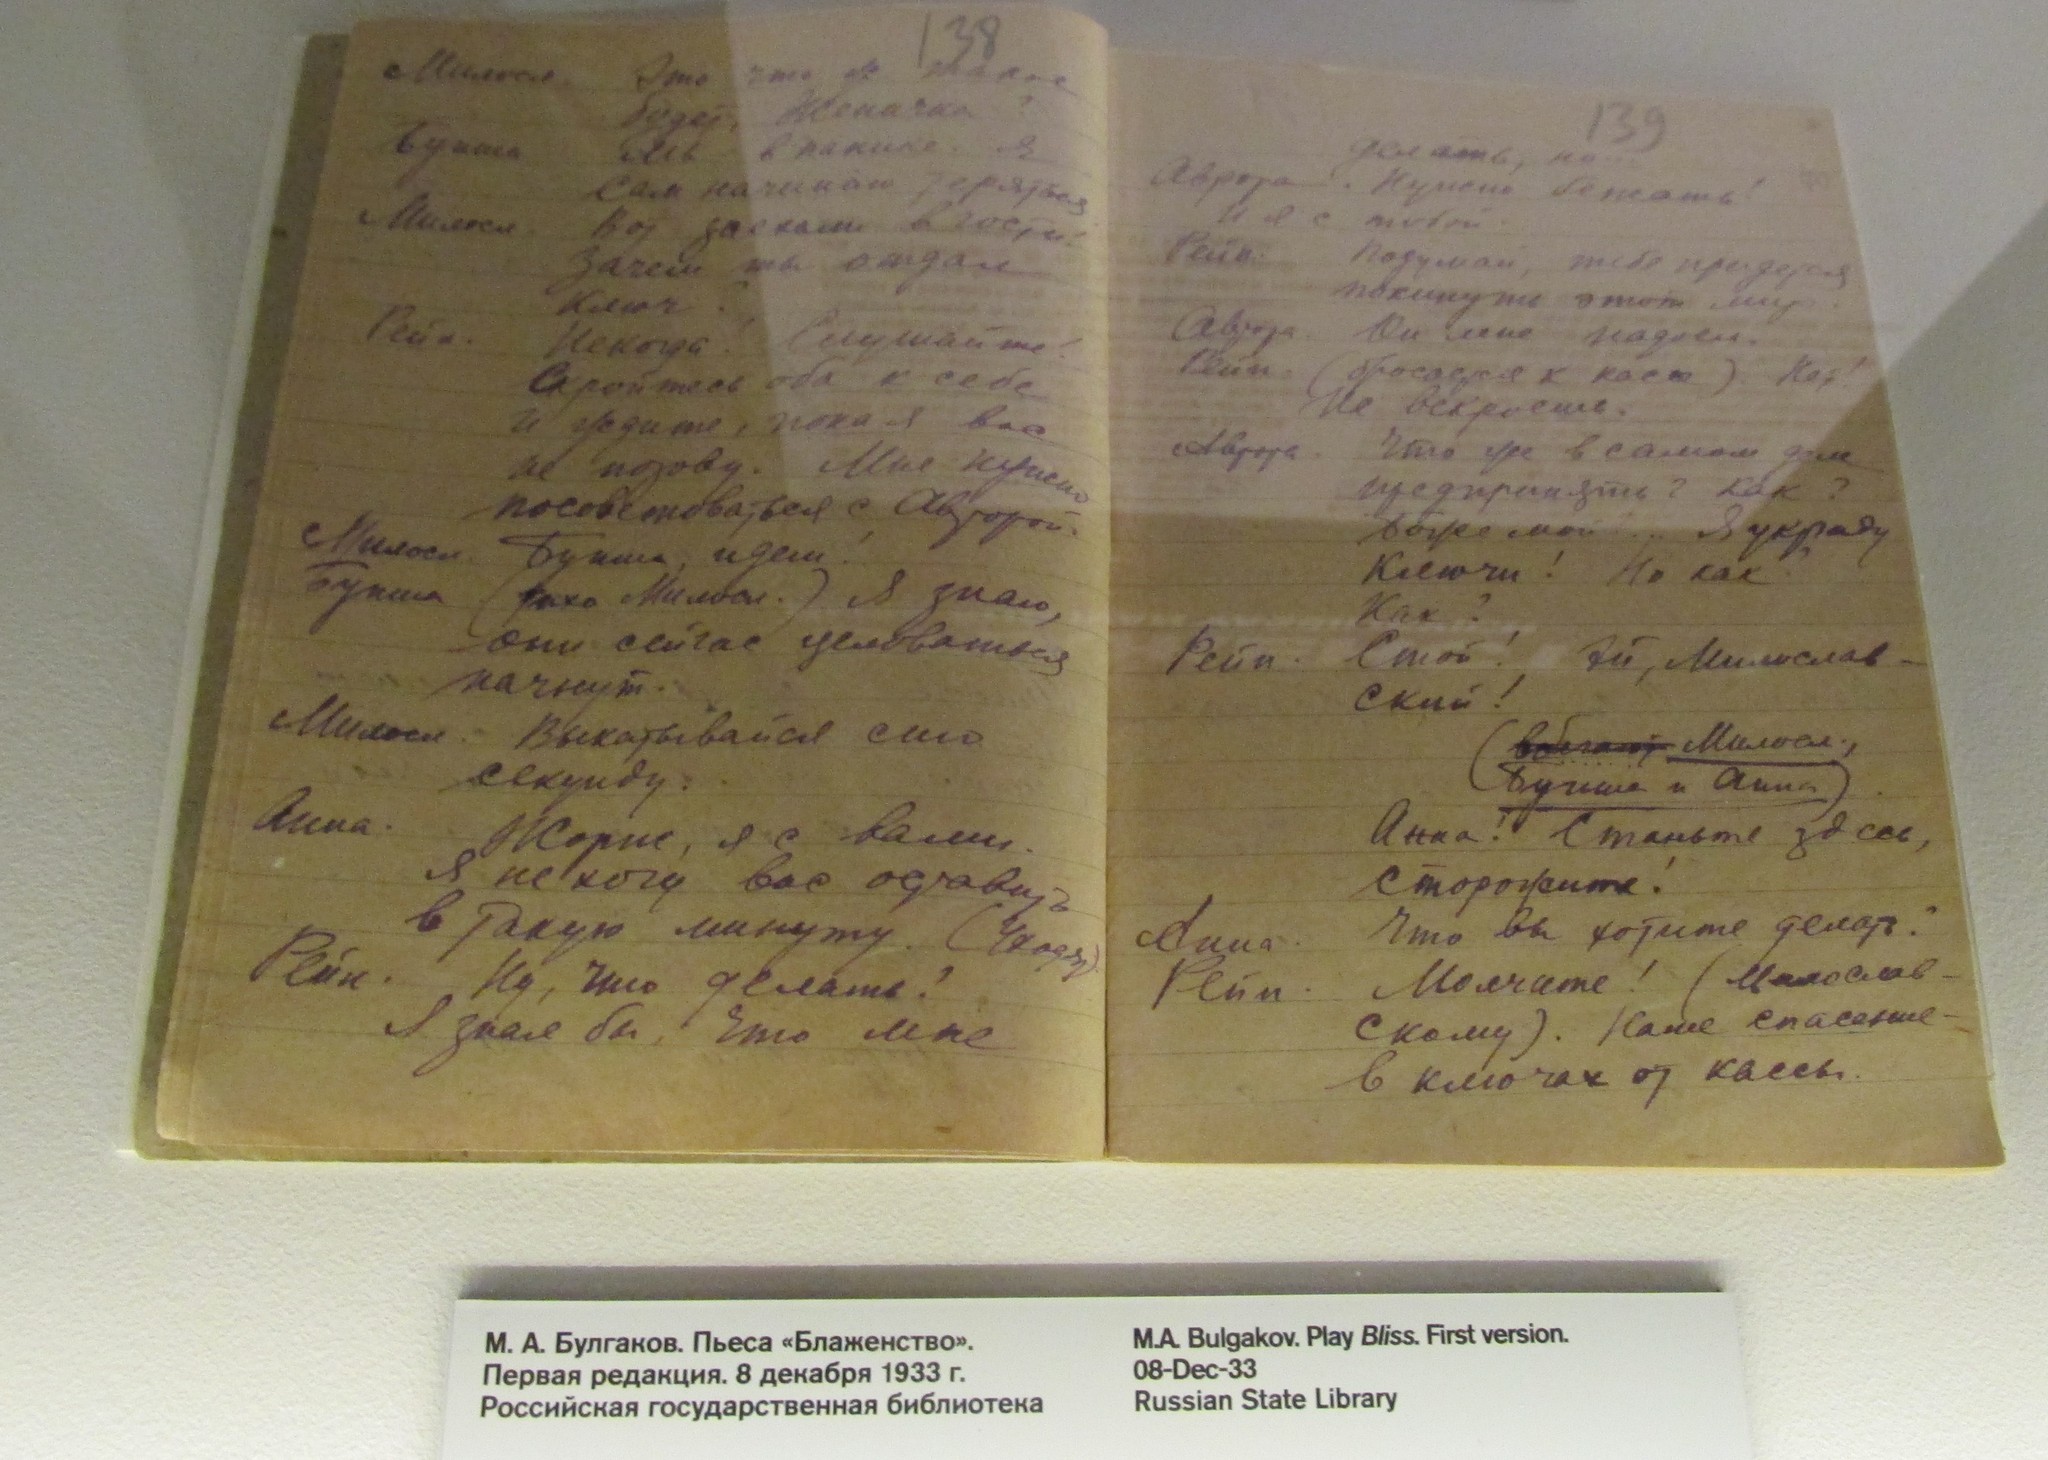 138
Милосл. Это что ж такое
будет, Женичка?
Бунша Мы в панике. Я
сам начинаю теряться
Милосл. Вот заехали в гости!
Зачем ты отдал
ключ?
Рейн. Некогда! Слушайте!
Скройтесь оба к себе
и ждите, пока я вас
не позову. Мне нужно
посоветоваться с Авророй.
Милосл. Бунша, идем!
Бунша (тихо Милосл.) Я знаю,
они сейчас целоваться
начнут.
Милосл. Выкатывайся сию
секунду.
Анна. Жорж, я с вами.
Я не хочу вас оставить
в такую минуту. (Уходят).
Рейн. Ну, что делать?
Я знал бы, что мне
139
делать, но...
Аврора. Нужно бежать!
И я с тобой.
Рейн. Подумай, тебе придется
покинуть этот мир.
Аврора. Он мне надоел.
Рейн. (бросается к кассе). Нет!
Не вскроешь.
Аврора. Что же в самом деле
предпринять? Как?
Боже мой!... Я украду
ключи! Но как?
Как?
Рейн. Стой! Эй, Милослав-
ский!
(вбегают Милосл.,
Бунша и Анна).
Анна! Станьте здесь,
сторожите!
Анна. Что вы хотите делать?
Рейн. Молчите! (Милослав-
скому). Наше спасение-
в ключах от кассы.
М. А. Булгаков. Пьеса «Блаженство».
Первая редакция. 8 декабря 1933 г.
Российская государственная библиотека
M.A. Bulgakov. Play Bliss. First version.
08-Dec-33
Russian State Library